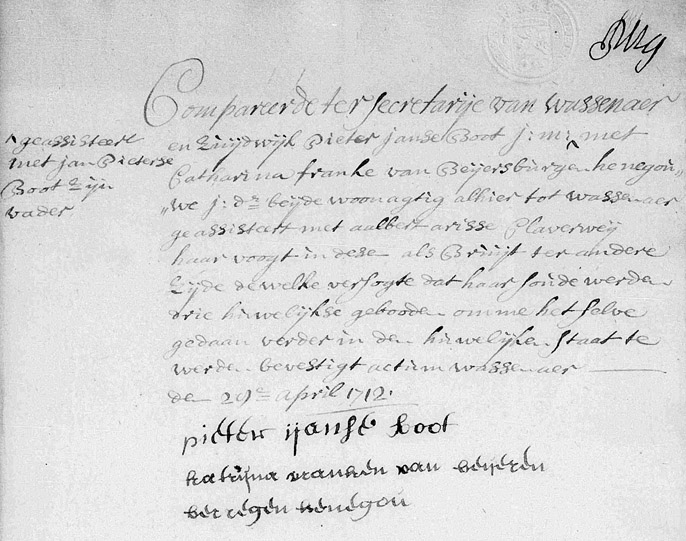 Compareerde ter secretarije van wassenaer
en Zuijdwijk Pieter janse Boot j: m: met
^geassisteert
met jan Pieterse
Boot Zijn
vader
Catharina franke van Beijersburgen henegou„
„we j: dr beijde woonagtig alhier tot wassenaer
geassisteert met aalbert arisse Claverweij
haar voogt in dese als Bruijt ter andere
Zijde dewelke versogte dat haar soude werden
drie huwelijkse geboode omme het selve
gedaan verder in den huwelijken staat te
werden bevestigt actum wassenaer
de 29en april 1712.
pieter ijanse boot
katrijna vranken van beijeren
berregen henegou